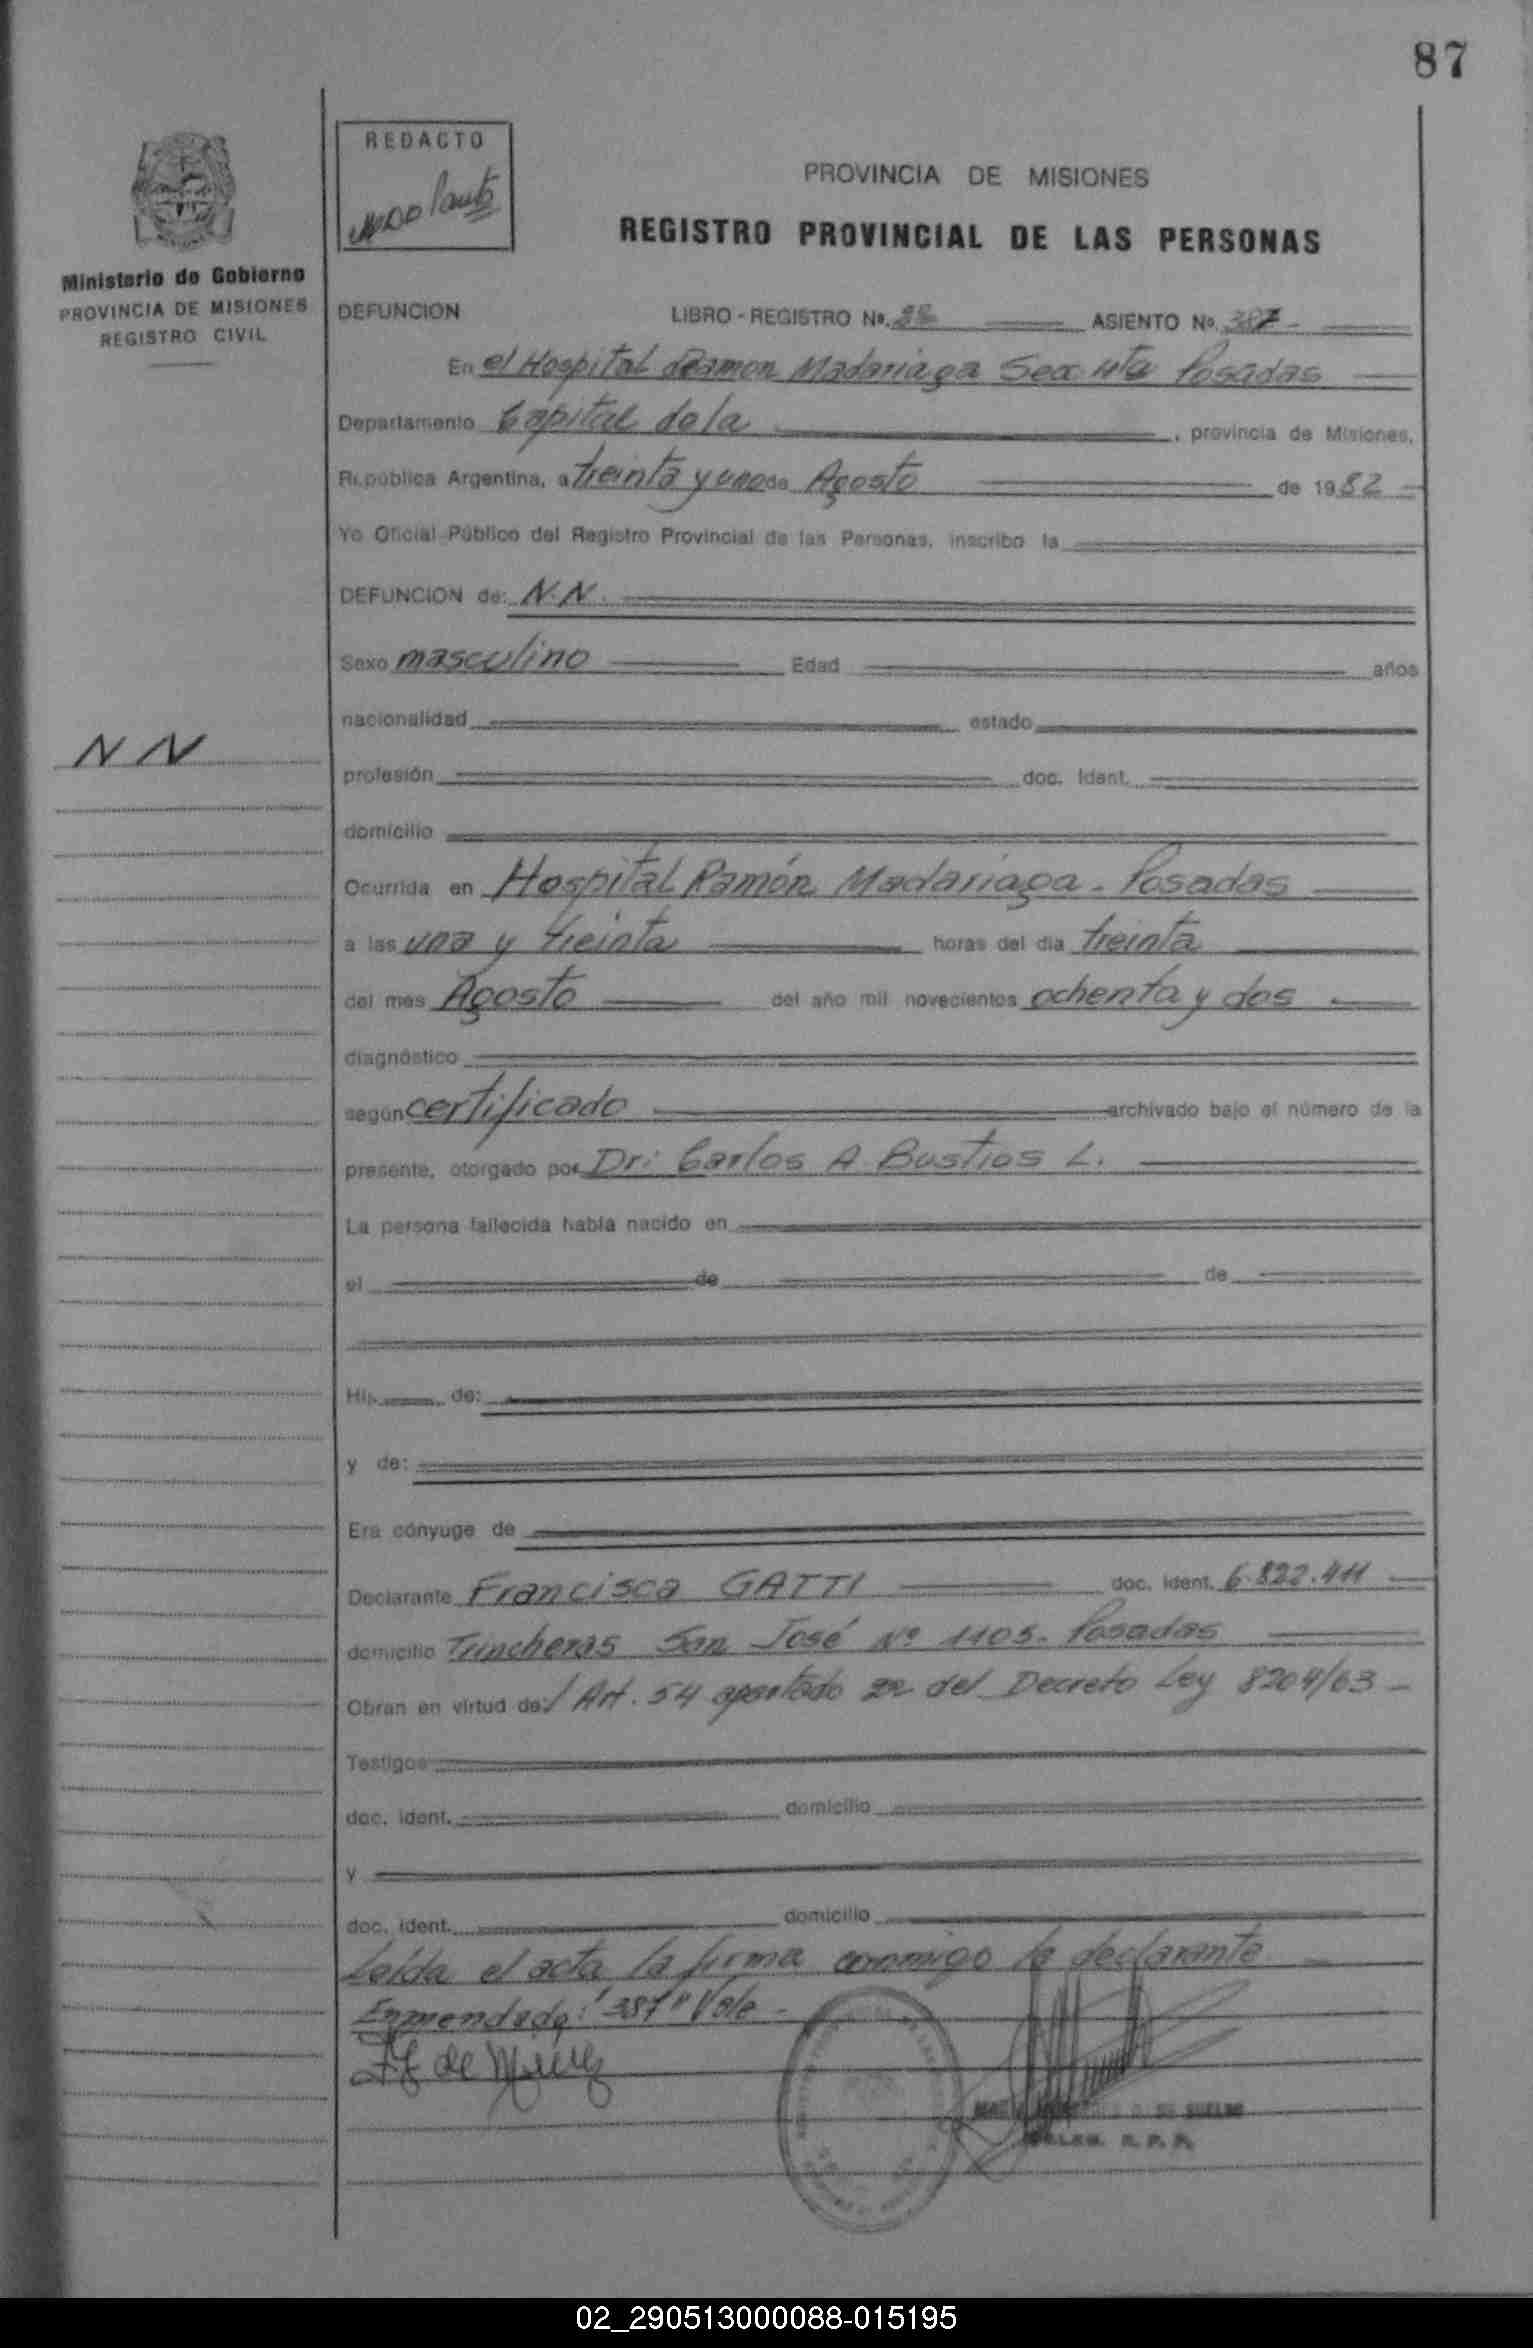 87
REDACTO
Ministerio de Gobierno
PROVINCIA DE MISIONES
REGISTRO CIVIL
PROVINCIA DE MISIONES
REGISTRO PROVINCIAL DE LAS PERSONAS
DEFUNCION LIBRO - REGISTRO Nº. ASIENTO Nº. 387
En el Hospital Ramon Madariaga Secc 4ta Posadas
Departamento Capital de la , provincia de Misiones,
República Argentina, a treinta y uno de Agosto de 1982
Yo Oficial Público del Registro Provincial de las Personas, inscribo la
DEFUNCION de: N.N.
Sexo masculino Edad años
nacionalidad estado
N N
profesión doc. Ident.
domicilio
Ocurrida en Hospital Ramón Madariaga - Posadas
a las una y treinta horas del día treinta
del mes Agosto del año mil novecientos ochenta y dos
diagnóstico
según certificado archivado bajo el número de la
presente, otorgado por Dr: Carlos A. Bustios L.
La persona fallecida había nacido en
el de de
Hij de:
y de:
Era cónyuge de
Declarante Francisca GATTI doc. ident. 6.822.411
domicilio Trincheras San José Nº 1105 - Posadas
Obran en virtud de: Art. 54 apartado 2º del Decreto Ley 8204/63 -
Testigos
doc. ident. domicilio
y
doc. ident. domicilio
Leída el acta la firma conmigo la declarante
Enmendado: "387" Vale -
R. P. P.
02_290513000088-015195